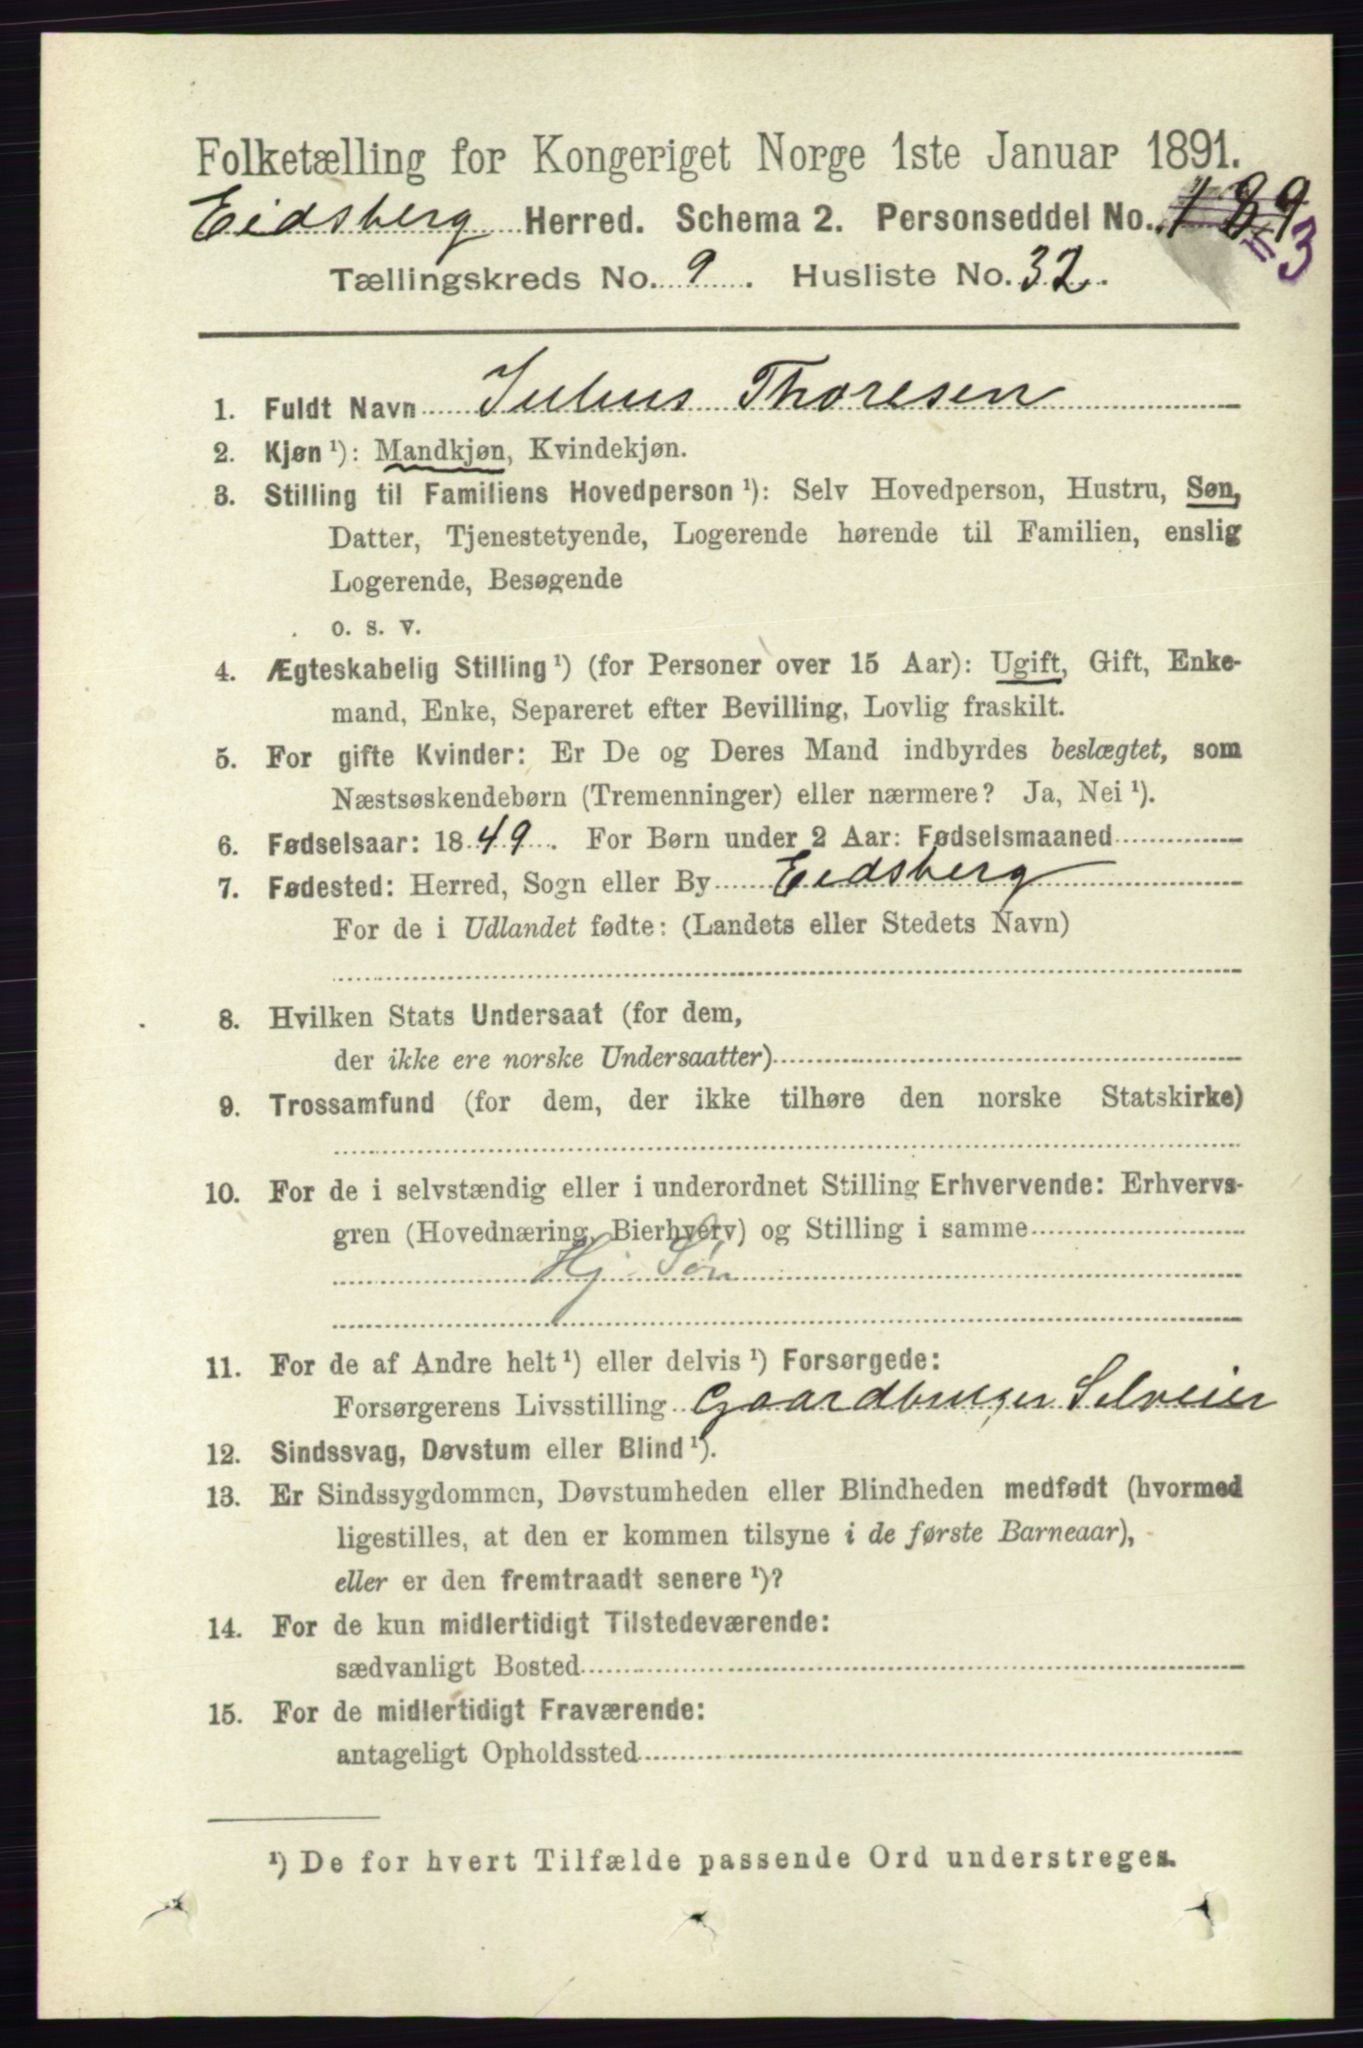 Folketælling for Kongeriget Norge 1ste Januar 1891.
Eidsberg Herred. Schema 2. Personseddel No. 189 3
Tællingskreds No. 9. Husliste No. 32.
1. Fuldt Navn Julius Thoresen
2. Kjøn ¹): Mandkjøn, Kvindekjøn.
3. Stilling til Familiens Hovedperson ¹): Selv Hovedperson, Hustru, Søn,
Datter, Tjenestetyende, Logerende hørende til Familien, enslig
Logerende, Besøgende
o. s. v.
4. Ægteskabelig Stilling ¹) (for Personer over 15 Aar): Ugift, Gift, Enke-
mand, Enke, Separeret efter Bevilling, Lovlig fraskilt.
5. For gifte Kvinder: Er De og Deres Mand indbyrdes beslægtet, som
Næstsøskendebørn (Tremenninger) eller nærmere? Ja, Nei ¹).
6. Fødselsaar: 1849. For Børn under 2 Aar: Fødselsmaaned
7. Fødested: Herred, Sogn eller By Eidsberg
For de i Udlandet fødte: (Landets eller Stedets Navn)
8. Hvilken Stats Undersaat (for dem,
der ikke ere norske Undersaatter)
9. Trossamfund (for dem, der ikke tilhøre den norske Statskirke)
10. For de i selvstændig eller i underordnet Stilling Erhvervende: Erhvervs-
gren (Hovednæring, Bierhverv) og Stilling i samme
Hj. Søn
11. For de af Andre helt ¹) eller delvis ¹) Forsørgede:
Forsørgerens Livsstilling Gaardbruger Selveier
12. Sindssvag, Døvstum eller Blind ¹).
13. Er Sindssygdommen, Døvstumheden eller Blindheden medfødt (hvormed
ligestilles, at den er kommen tilsyne i de første Barneaar),
eller er den fremtraadt senere ¹)?
14. For de kun midlertidigt Tilstedeværende:
sædvanligt Bosted
15. For de midlertidigt Fraværende:
antageligt Opholdssted
¹) De for hvert Tilfælde passende Ord understreges.